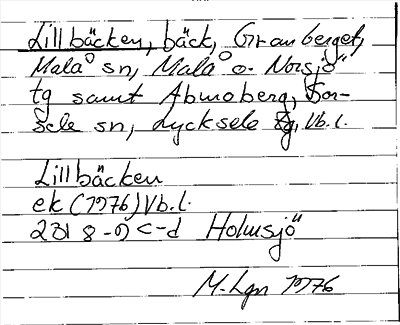 Lillbäcken, bäck, Granberget,
Malå sn, Malå o. Norsjö
tg samt Abmoberg, Sor-
sele sn, Lycksele tg, Vb.l.
Lillbäcken
ek (1976) Vb.l.
23I 8-9 c-d Holmsjö
M. Lgn 1976